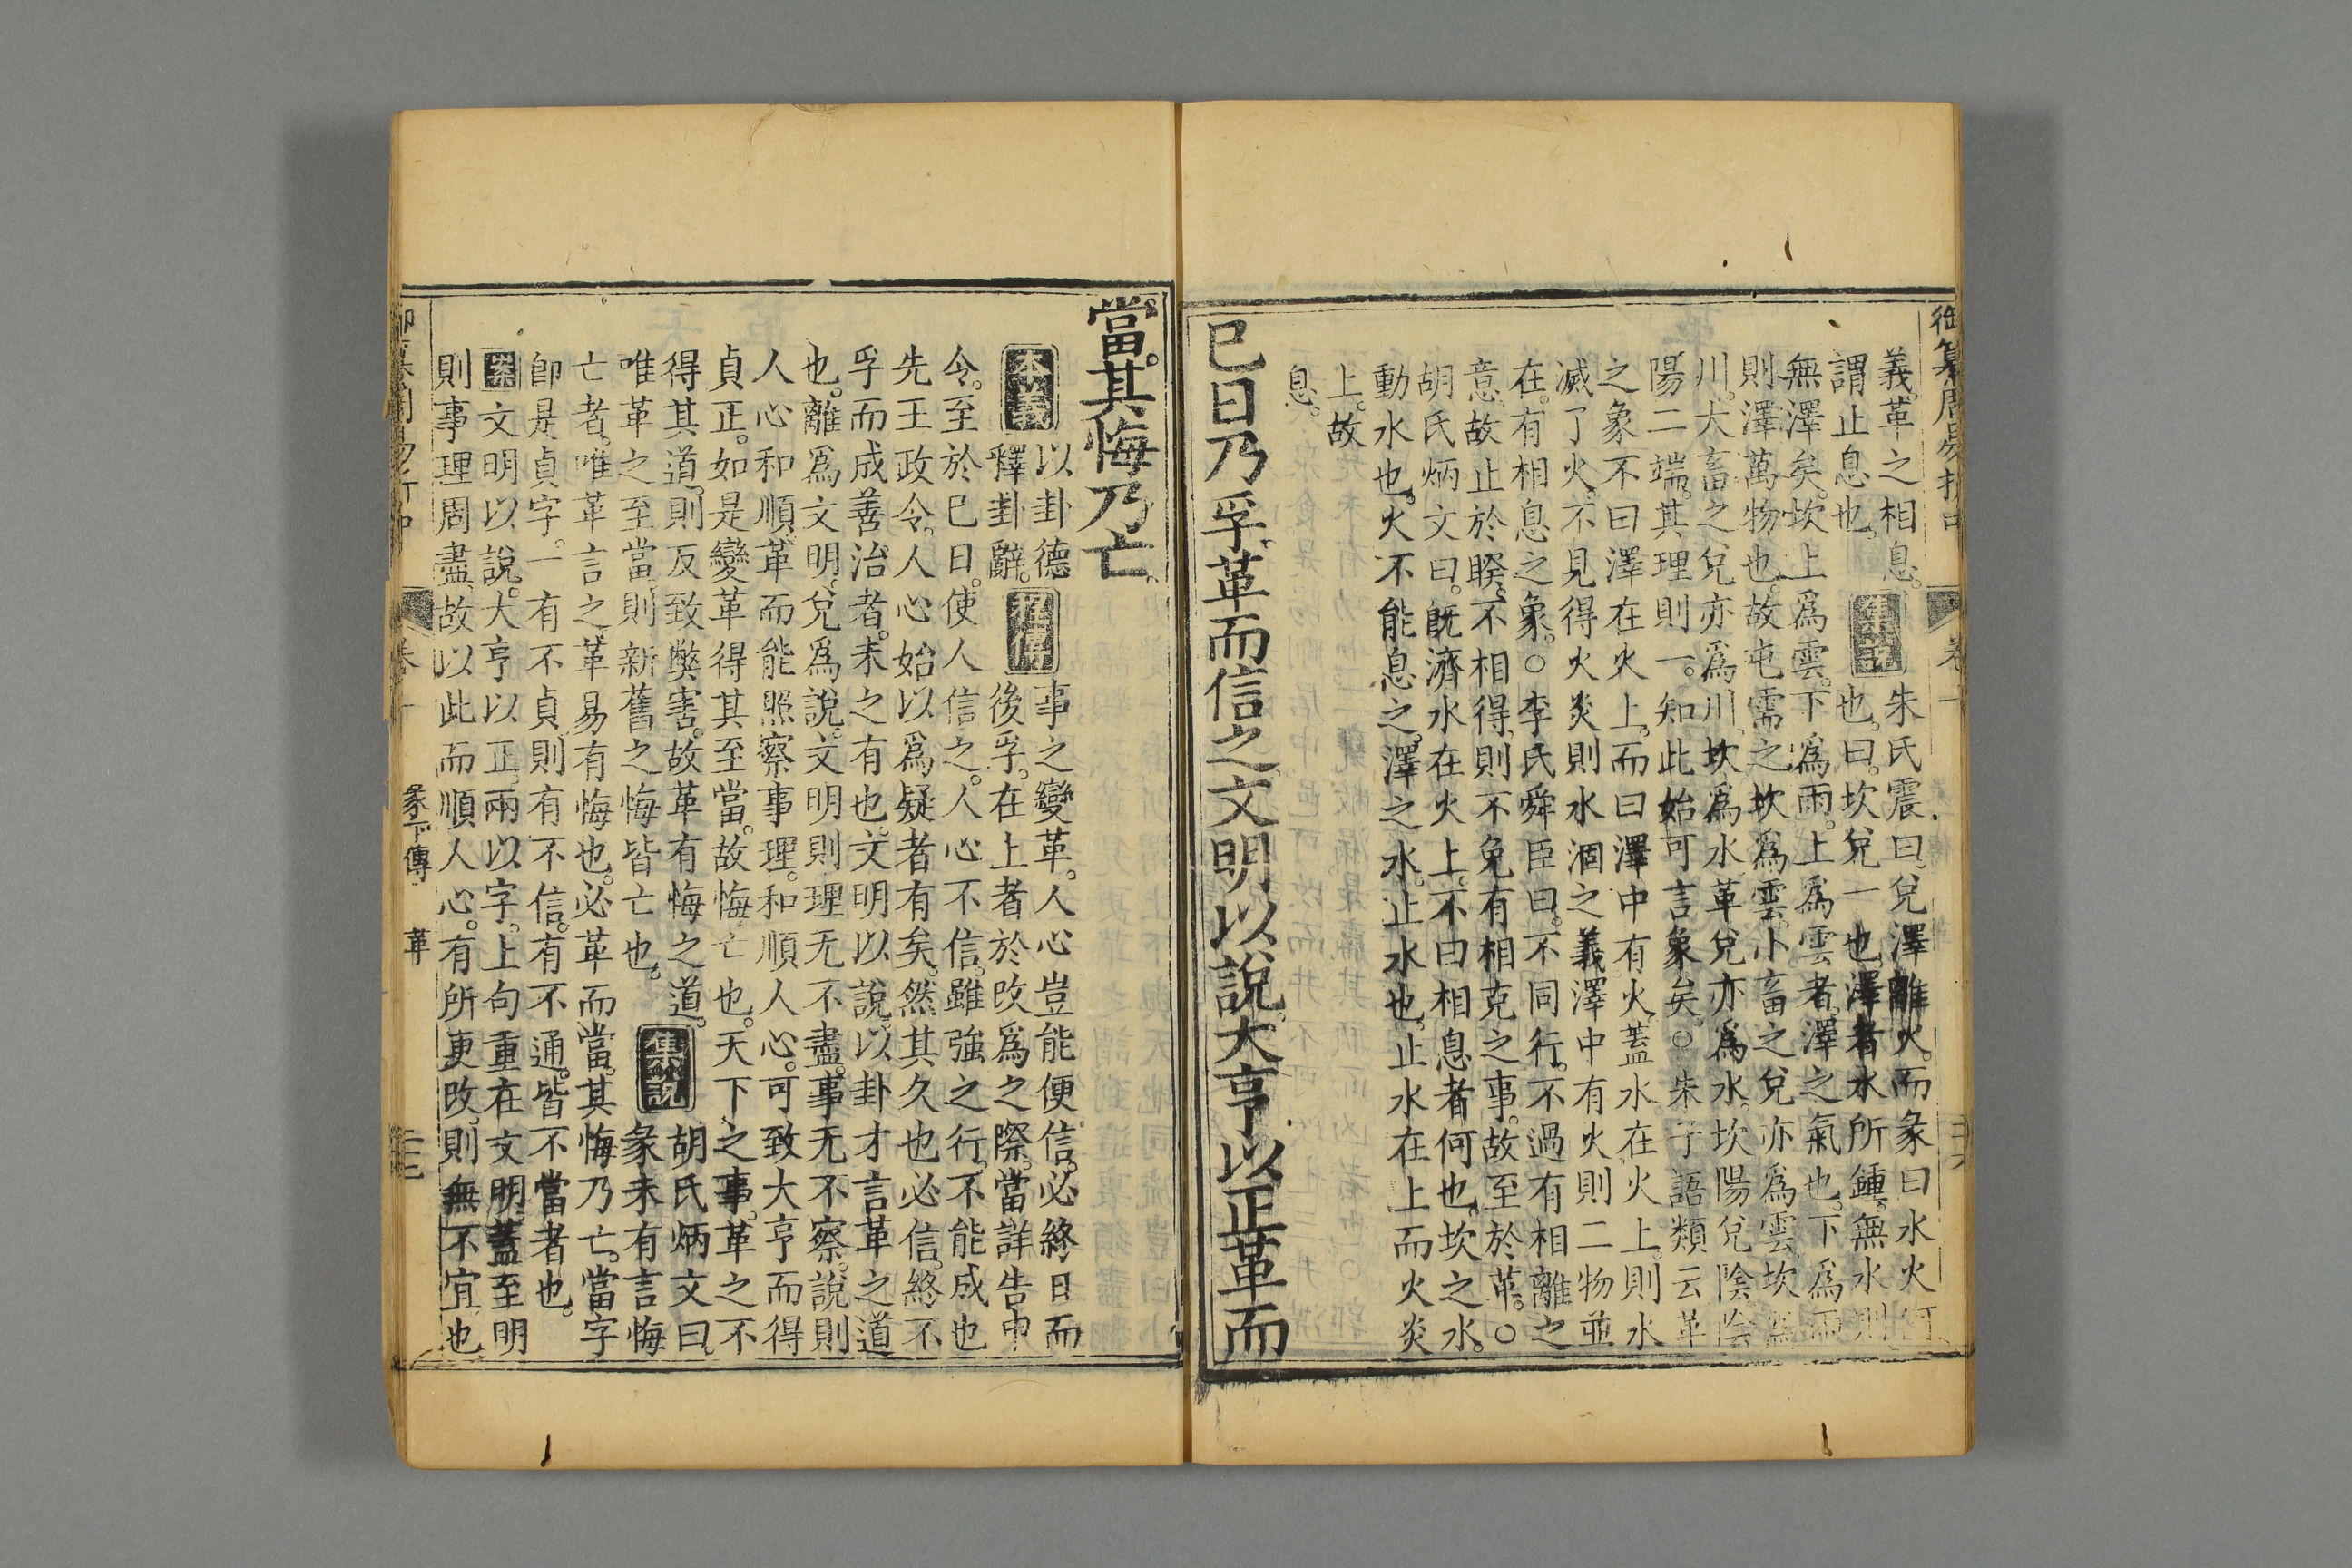 御纂周易折中
卷十
義革之相息。集說朱氏震曰。兌澤離火。而彖曰水火何
謂止息也。也。曰。坎兌一也。澤者水所鍾。無水則
無澤矣。坎上爲雲。下爲雨。上爲雲者。澤之氣也。下爲雨
則澤萬物也。故屯需之坎爲雲。小畜之兌亦爲雲。坎爲
川。大畜之兌亦爲川。坎爲水。革兌亦爲水。坎陽兌陰。陰
陽二端。其理則一。知此始可言象矣。○朱子語類云。革
之象不曰澤在火上。而曰澤中有火。蓋水在火上。則水
滅了火。不見得火炎則水涸之義。澤中有火。則二物並
在。有相息之象。○李氏舜臣曰。不同行。不過有相離之
意。故止於睽。不相得。則不免有相克之事。故至於革。○
胡氏炳文曰。旣濟水在火上。不曰相息者何也。坎之水。
動水也。火不能息之。澤之水。止水也。止水在上而火炎
上。故
息。
巳日乃孚。革而信之。文明以說。大亨以正。革而
當。其悔乃亡。
本義以卦德釋卦辭。程傳事之變革。人心豈能便信。必終日而
後孚。在上者於改爲之際。當詳告申
令。至於巳日。使人信之。人心不信。雖強之行。不能成也
先王政令。人心始以爲疑者有矣。然其久也必信。終不
孚而成善治者。未之有也。文明以說。以卦才言革之道
也。離爲文明。兌爲說。文明則理无不盡。事无不察。說則
人心和順。革而能照察事理。和順人心。可致大亨而得
貞正。如是變革得其至當。故悔亡也。天下之事。革之不
得其道。則反致弊害。故革有悔之道。
唯革之至當。則新舊之悔皆亡也。集說胡氏炳文曰。彖未有言悔
亡者。唯革言之。革易有悔也。必革而當。其悔乃亡。當字
卽是貞字。一有不貞。則有不信。有不通。皆不當者也。
案文明以說。大亨以正。兩以字。上句重在文明。蓋至明
則事理周盡。故以此而順人心。有所更改。則無不宜也
彖下傳 革